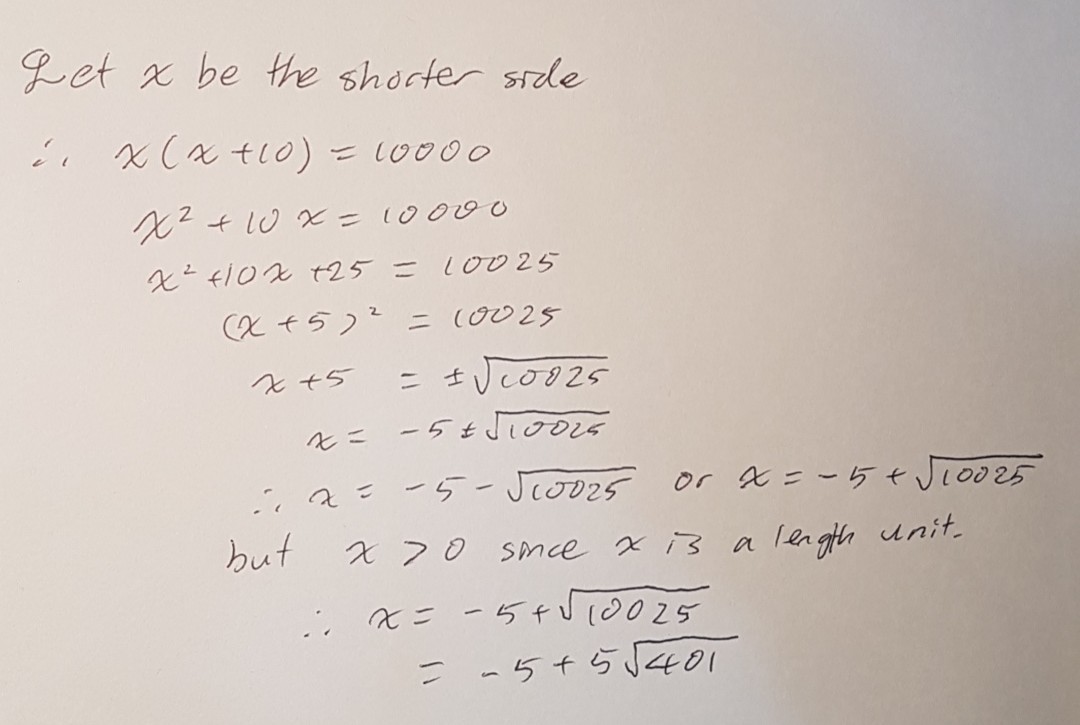 Let x be the shorter side
∴ x(x+10) = 10000
x² + 10x = 10000
x² + 10x + 25 = 10025
(x + 5)² = 10025
x + 5 = ±√10025
x = -5 ± √10025
∴ x = -5 - √10025 or x = -5 + √10025
but x > 0 since x is a length unit.
∴ x = -5 + √10025
= -5 + 5√401